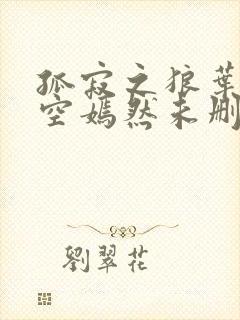 孤寂之狼葉
空嫣然未刪
劉翠花